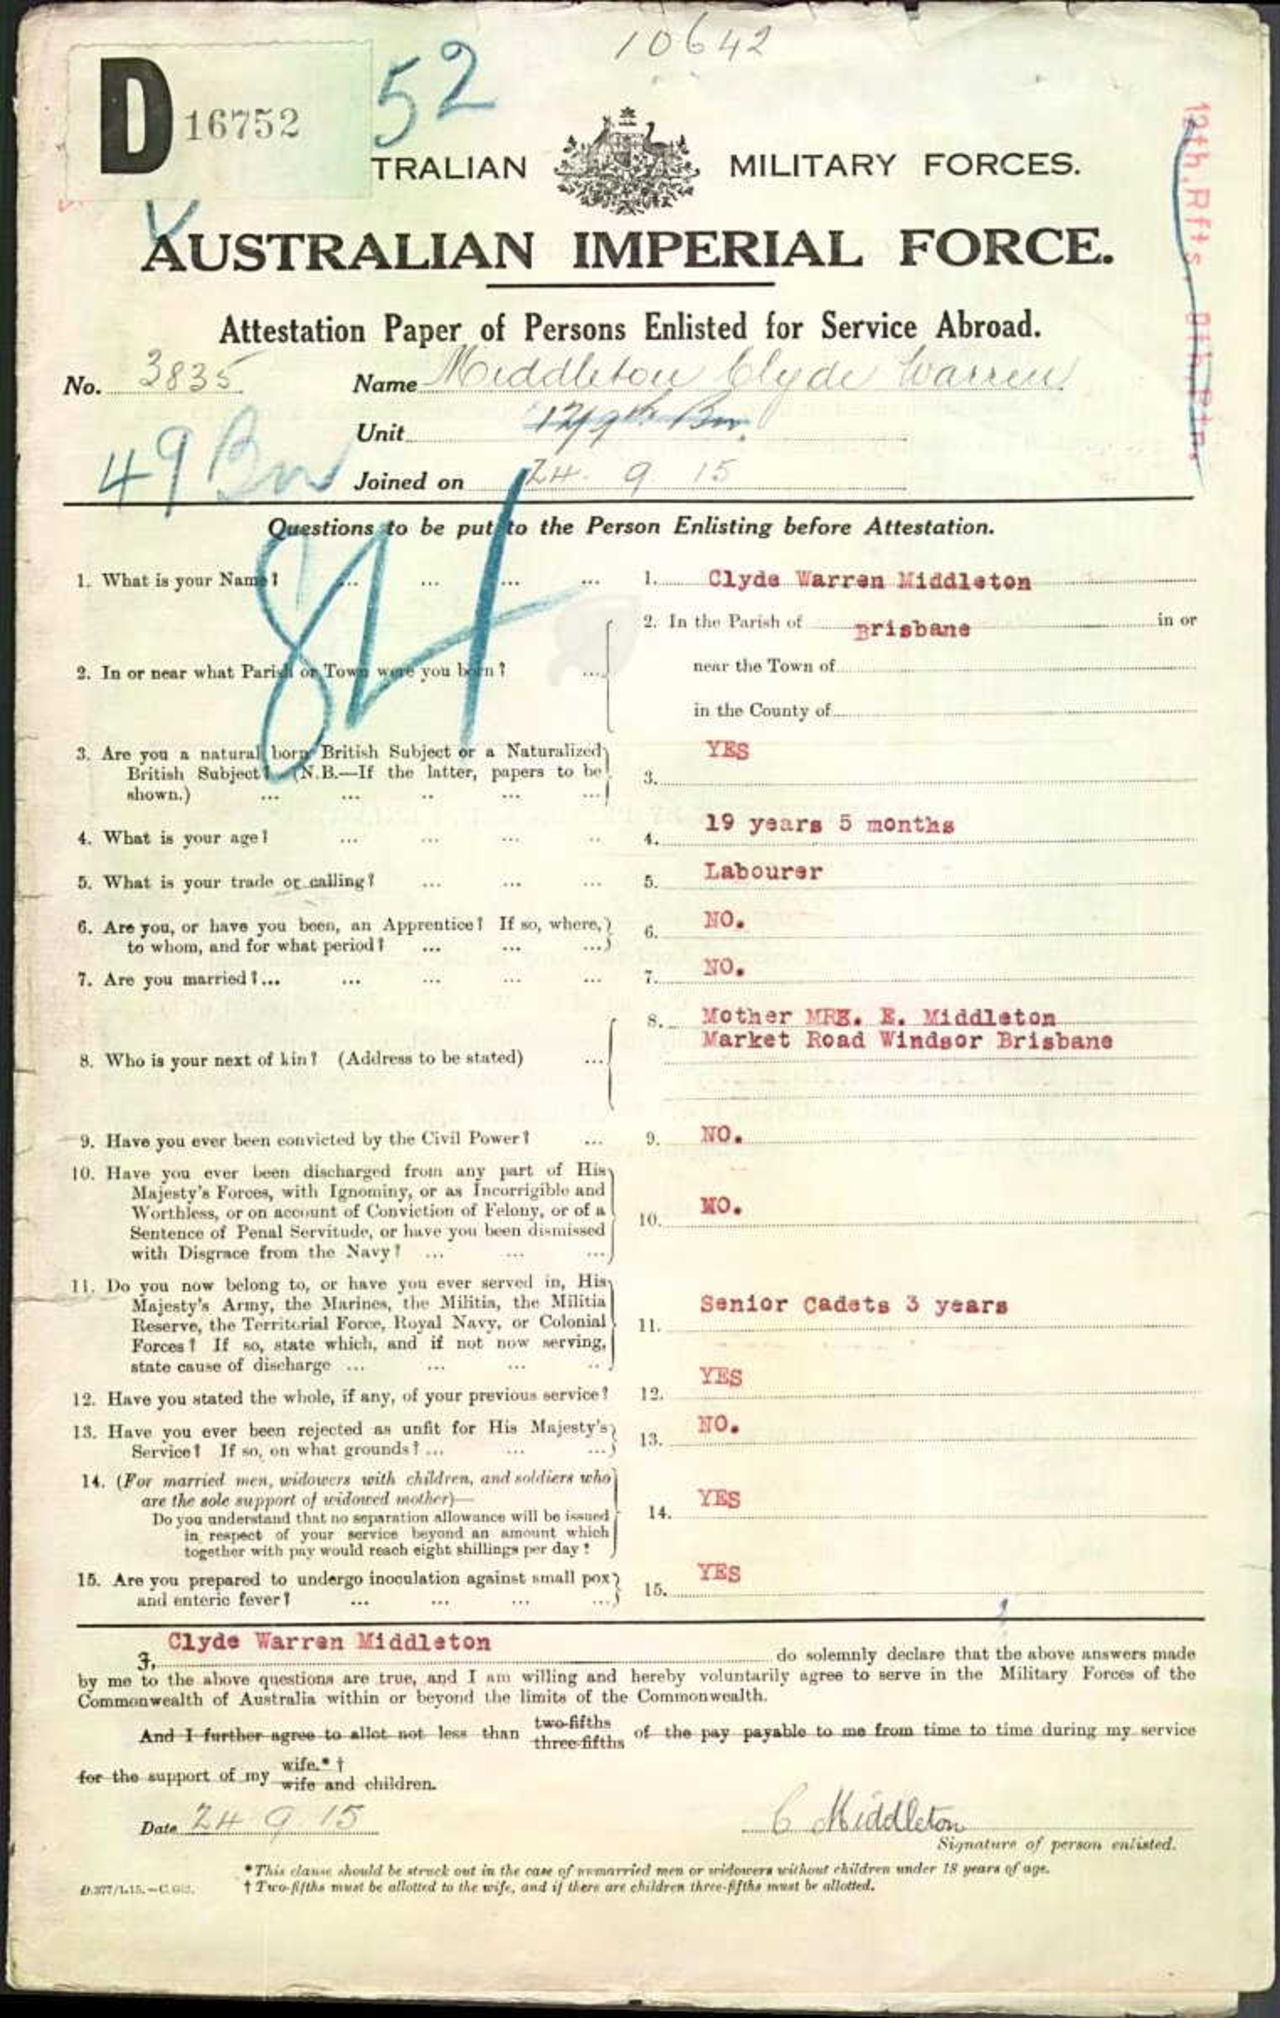 10642
D 16752
52
TRALIAN MILITARY FORCES.
12th. Rfts. 9th. Btn.
AUSTRALIAN IMPERIAL FORCE.
Attestation Paper of Persons Enlisted for Service Abroad.
No. 3835 Name Middleton Clyde Warren
Unit
49 Bn
Joined on 24. 9 15
Questions to be put to the Person Enlisting before Attestation.
1. What is your Name? ... ... ... ... 1. Clyde Warren Middleton
2. In the Parish of Brisbane in or
2. In or near what Parish or Town were you born? ... near the Town of
in the County of
3. Are you a natural born British Subject or a Naturalized YES
British Subject? (N.B.—If the latter, papers to be 3.
shown.) ... ... .. ... ...
4. What is your age? ... ... ... .. 4. 19 years 5 months
5. What is your trade or calling? ... ... ... 5. Labourer
6. Are you, or have you been, an Apprentice? If so, where, 6. NO.
to whom, and for what period? ... ... ...
7. Are you married?... ... ... ... ... 7. NO.
8. Mother MRS. E. Middleton
Market Road Windsor Brisbane
8. Who is your next of kin? (Address to be stated) ...
9. Have you ever been convicted by the Civil Power? ... 9. NO.
10. Have you ever been discharged from any part of His
Majesty's Forces, with Ignominy, or as Incorrigible and
Worthless, or on account of Conviction of Felony, or of a 10. NO.
Sentence of Penal Servitude, or have you been dismissed
with Disgrace from the Navy? ... ... ...
11. Do you now belong to, or have you ever served in, His
Majesty's Army, the Marines, the Militia, the Militia Senior Cadets 3 years
Reserve, the Territorial Force, Royal Navy, or Colonial 11.
Forces? If so, state which, and if not now serving,
state cause of discharge ... ... ... ..
12. Have you stated the whole, if any, of your previous service? 12. YES
13. Have you ever been rejected as unfit for His Majesty's NO.
Service? If so, on what grounds? ... ... ... 13.
14. (For married men, widowers with children, and soldiers who
are the sole support of widowed mother)— YES
Do you understand that no separation allowance will be issued 14.
in respect of your service beyond an amount which
together with pay would reach eight shillings per day?
15. Are you prepared to undergo inoculation against small pox YES
and enteric fever? ... ... ... ... 15.
84
Clyde Warren Middleton
I, do solemnly declare that the above answers made
by me to the above questions are true, and I am willing and hereby voluntarily agree to serve in the Military Forces of the
Commonwealth of Australia within or beyond the limits of the Commonwealth.
And I further agree to allot not less than two-fifths three-fifths of the pay payable to me from time to time during my service
for the support of my wife.* † wife and children.
Date 24 9 15 C Middleton
Signature of person enlisted.
*This clause should be struck out in the case of unmarried men or widowers without children under 18 years of age.
† Two-fifths must be allotted to the wife, and if there are children three-fifths must be allotted.